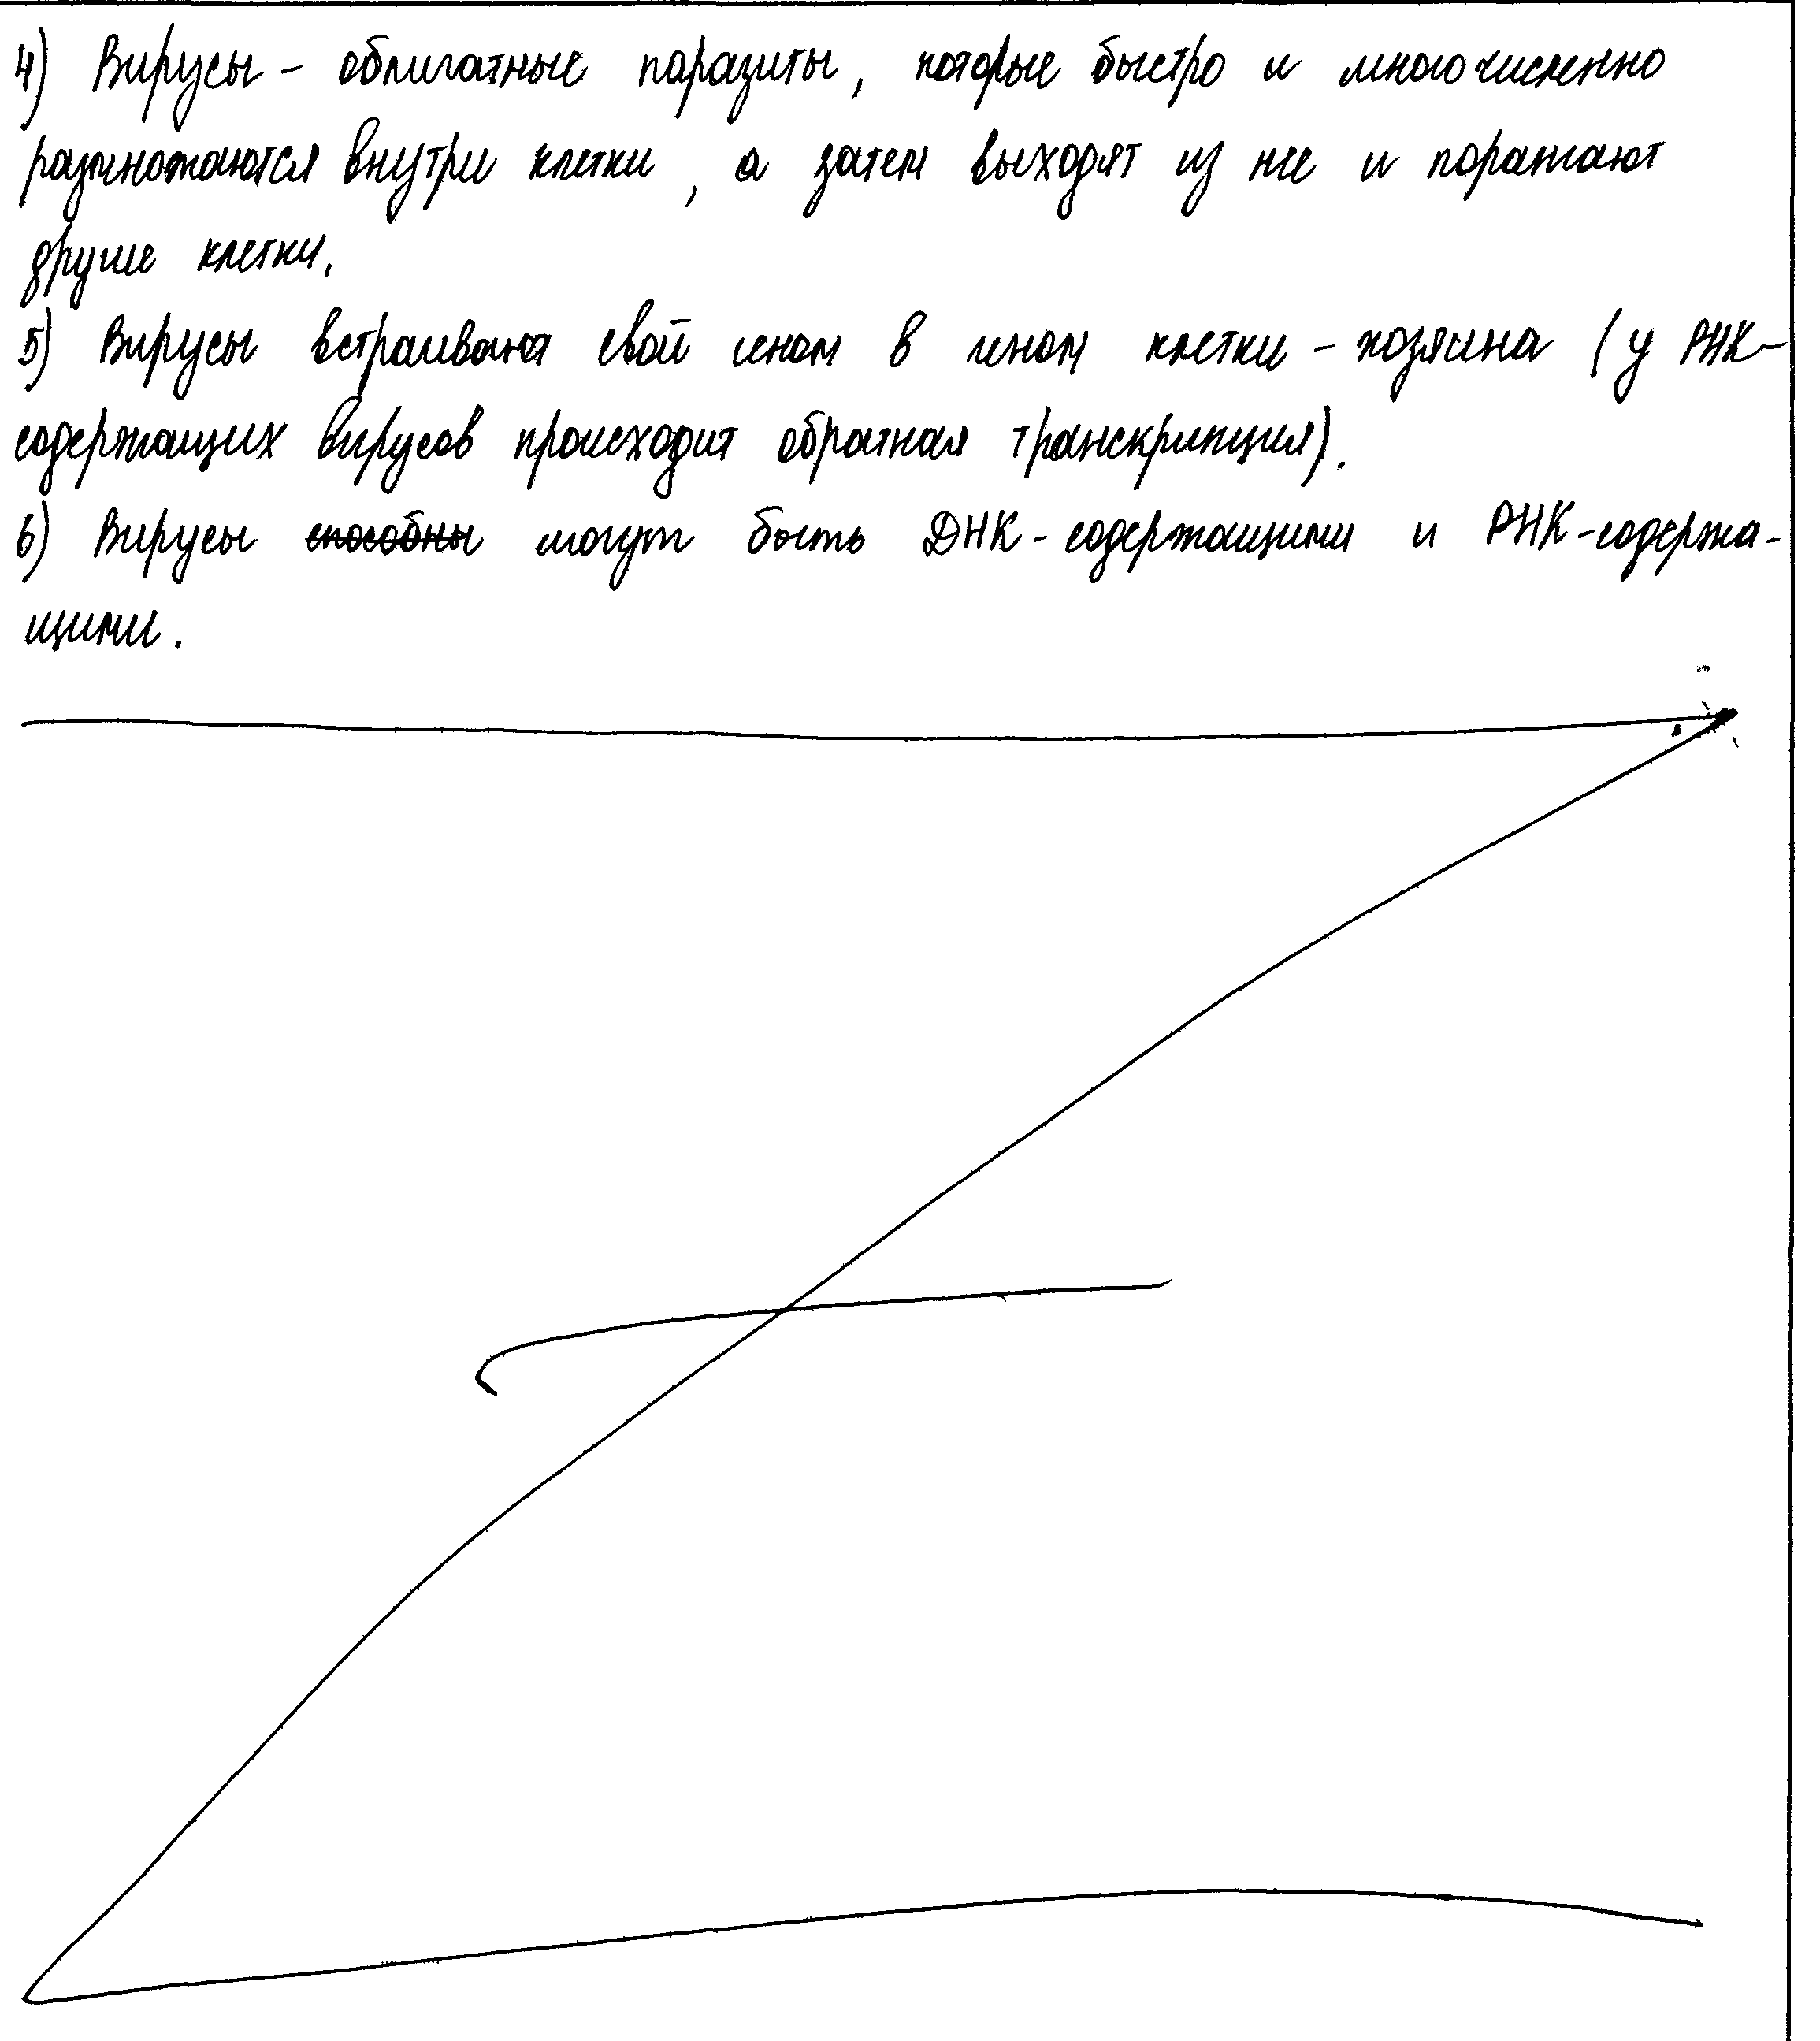 4) Вирусы - облигатные паразиты, которые быстро и многочисленно
размножаются внутри клетки, а затем выходят из нее и поражают
другие клетки.
5) Вирусы встраивают свой геном в геном клетки - хозяина (у РНК-
содержащих вирусов происходит обратная транскрипция).
6) Вирусы способны могут быть ДНК-содержащими и РНК-содержа-
щими.